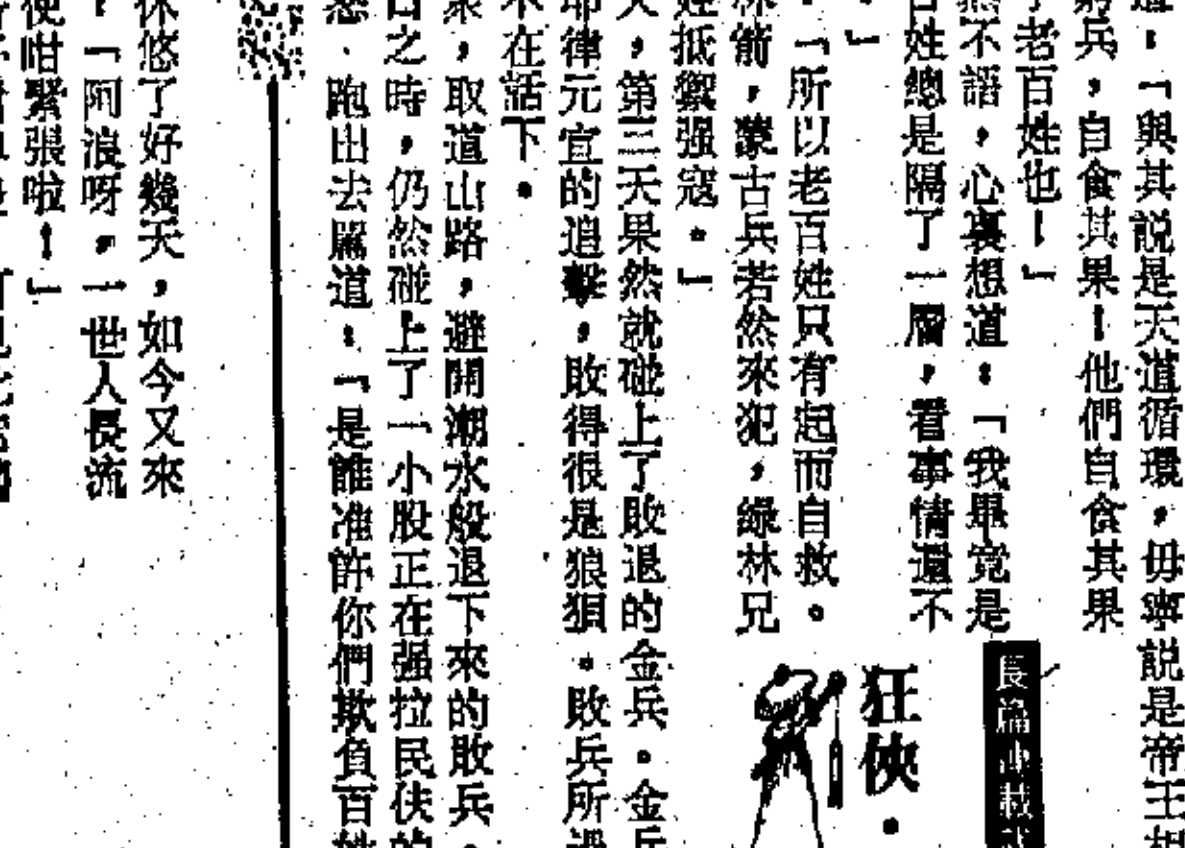 道：「與其説是天道循環，毋寧説是帝王
窮兵，自食其果！他們自食其果
了老百姓也！」
然不語，心裏想道：「我畢竟是
百姓總是隔了一層，看事情還不
。」
：「所以老百姓只有起而自救。
林箭，蒙古兵若然來犯，綠林兄
姓抵禦强寇。」
天，第三天果然就碰上了敗退的金兵。金兵
耶律元宜的追擊，敗得很是狼狽。敗兵所過
不在話下。
衆，取道山路，避開潮水般退下來的敗兵。
口之時，仍然碰上了一小股正在强拉民伕的
怒，跑出去駡道：「是誰准許你們欺負百姓
狂俠·
長篇連載武
休悠了好幾天，如今又來
「阿浪呀，一世人長流
使咁緊張啦！」